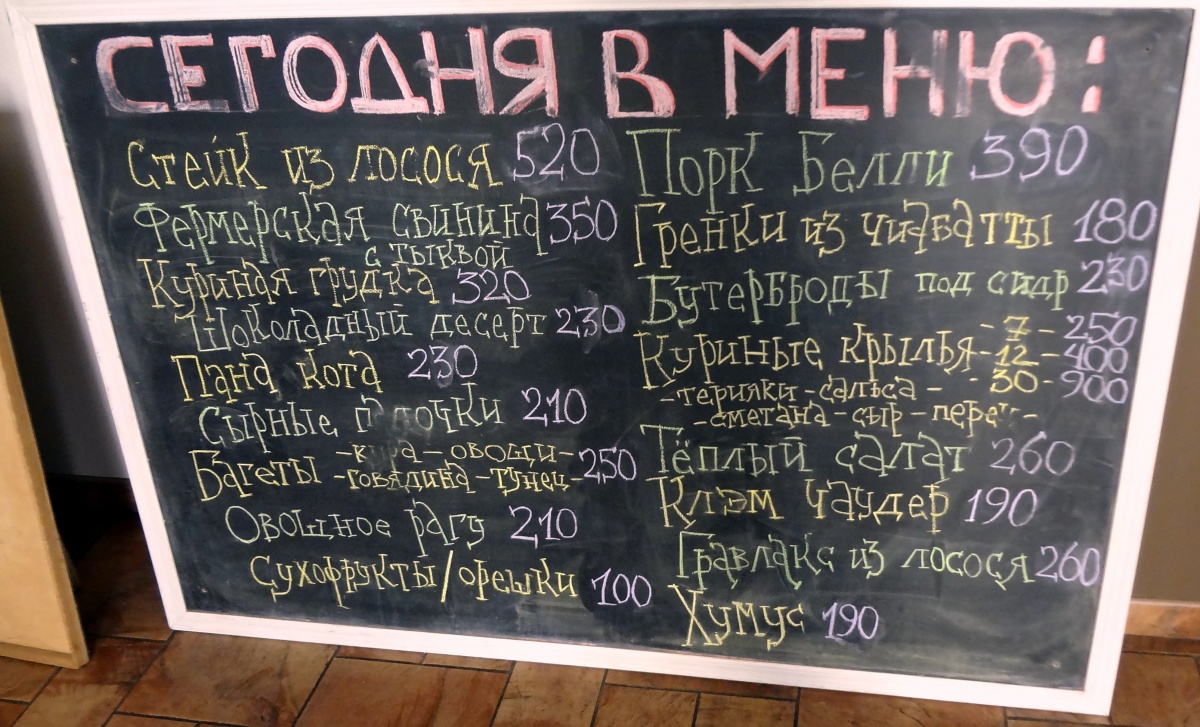 СЕГОДНЯ В МЕНЮ:
Стейк из лосося 520
Фермерская свинина 350
с тыквой
Куриная грудка 320
Шоколадный десерт 230
Пана кота 230
Сырные 210
Багеты - - овощи - 250
- говядина - тунец -
Овощное рагу 210
Сухофрукты/орешки 100
Порк Белли 390
Гренки из чиабатты 180
Бутерброды под сидр 230
Куриные крылья - 7 - 250
- 12 - 400
- 30 - 900
- терияки - сальса -
- сметана - сыр -
Тёплый салат 260
Клэм Чаудер 190
Гравлакс из лосося 260
Хумус 190